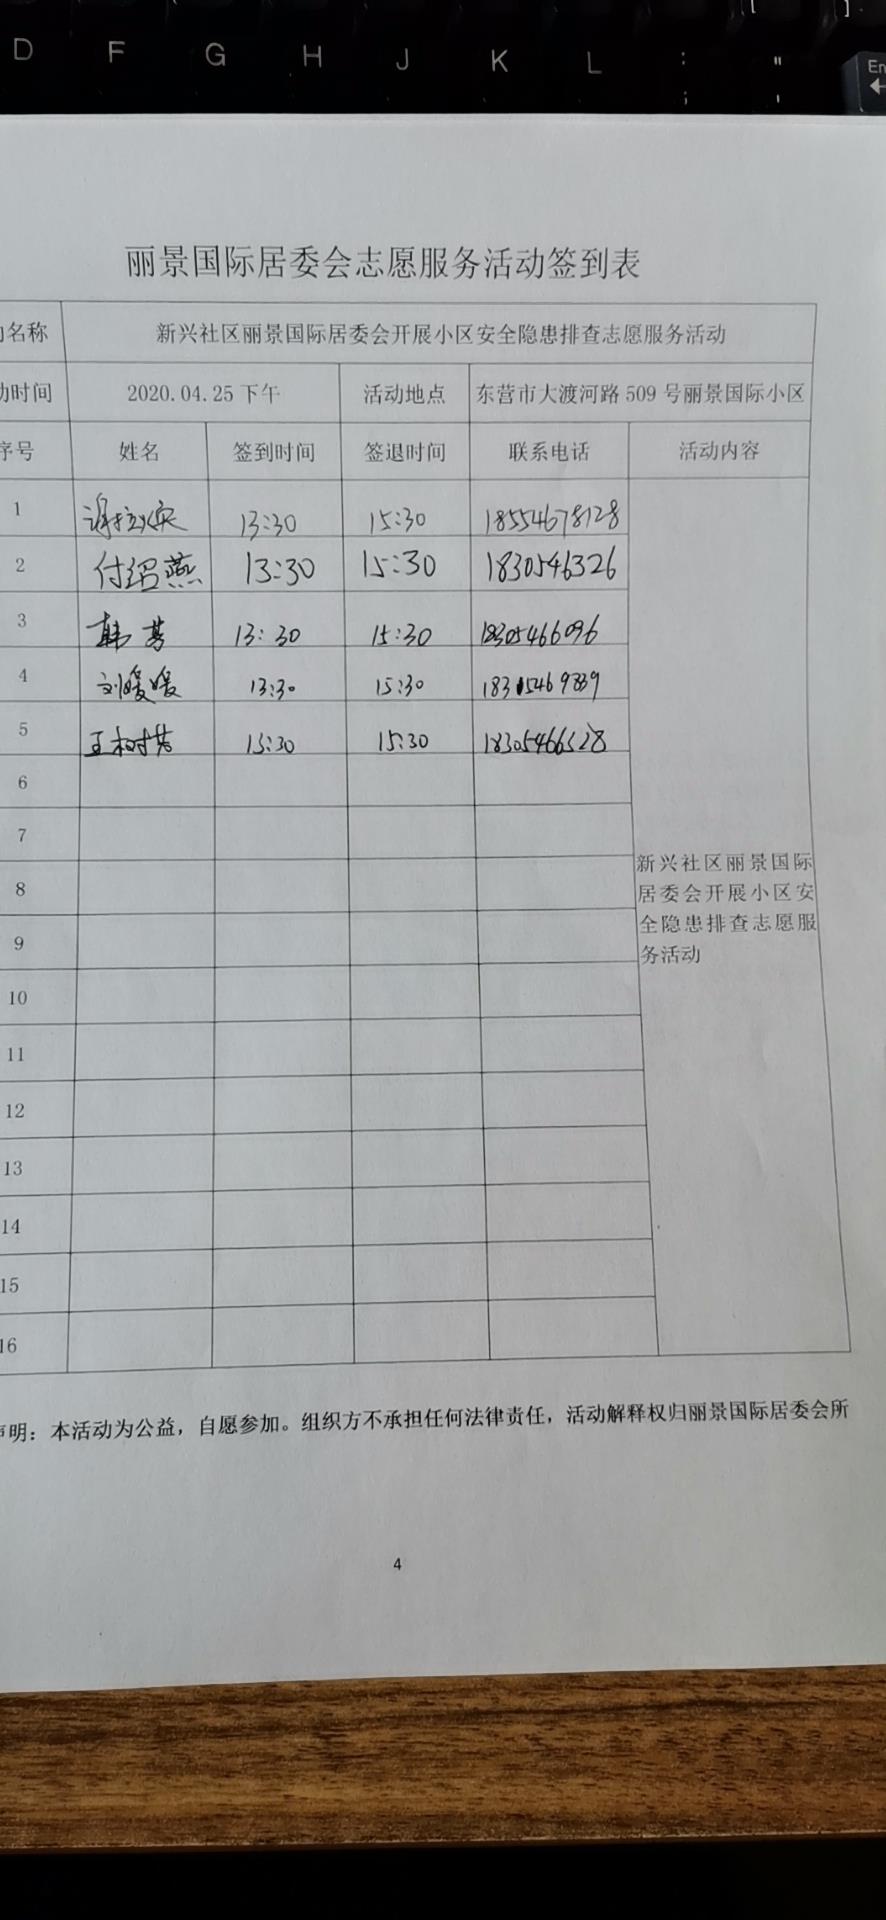 D F G H J K L : ; " ' [ ] En
丽景国际居委会志愿服务活动签到表
名称 新兴社区丽景国际居委会开展小区安全隐患排查志愿服务活动
动时间 2020.04.25下午 活动地点 东营市大渡河路509号丽景国际小区
序号 姓名 签到时间 签退时间 联系电话 活动内容
1 13:30 15:30 18554678128
2 付绍燕 13:30 15:30 1830546326
3 韩 13:30 15:30 18305466096
4 刘媛媛 13:30 15:30 18305469839
5 王树芳 13:30 15:30 18305466528
6
7
8
9
10
11
12
13
14
15
16
新兴社区丽景国际
居委会开展小区安
全隐患排查志愿服
务活动
声明：本活动为公益，自愿参加。组织方不承担任何法律责任，活动解释权归丽景国际居委会所
4